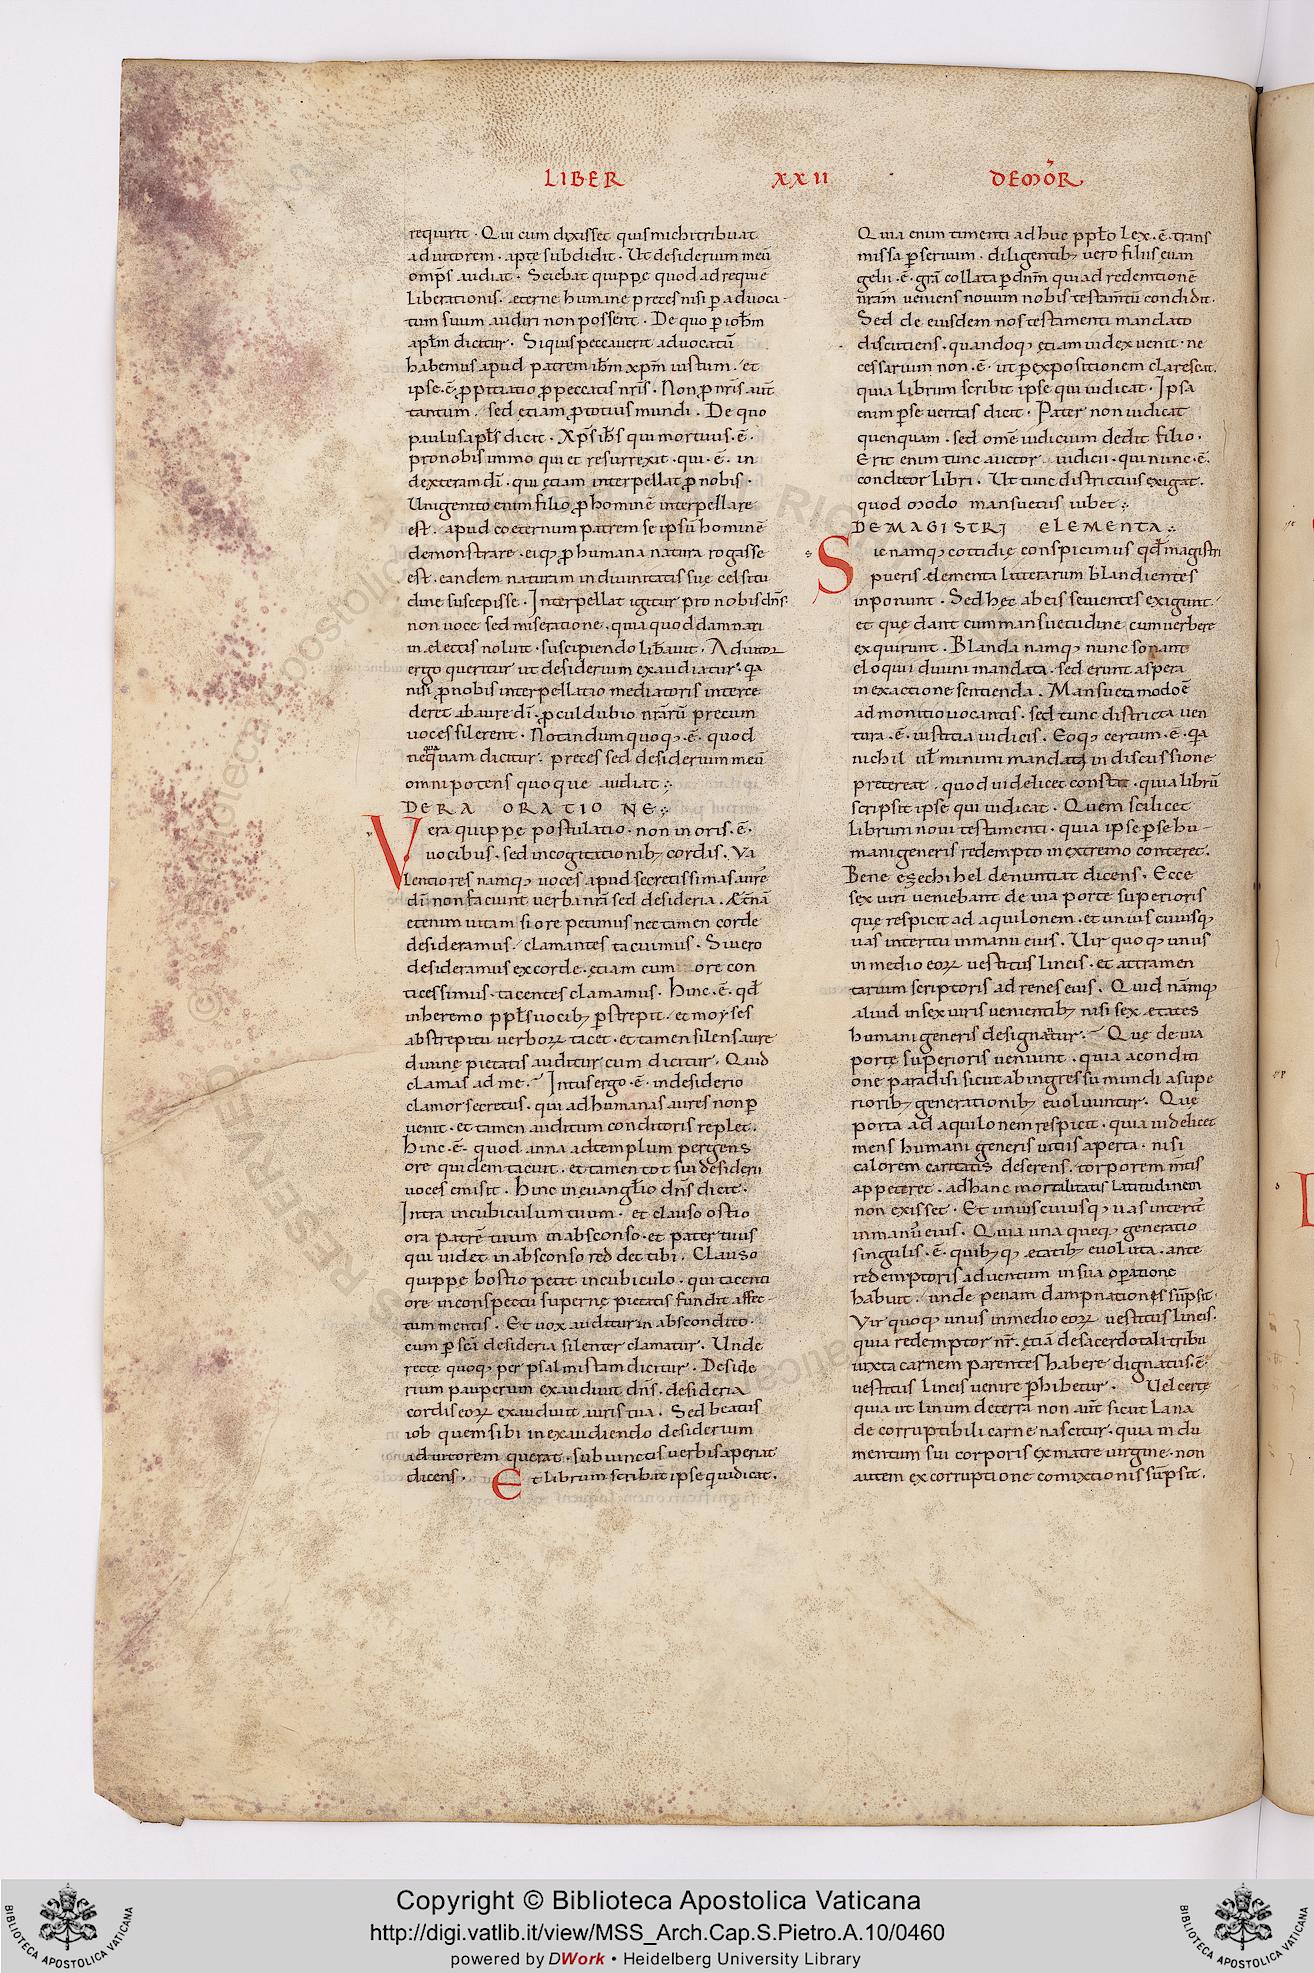 LIBER XXII DEMOR̄
requirit · Qui cum dixisset quis michi tribuat
adiutorem · apte subdidit · Ut desiderium meū
omp̄s audiat · Sciebat quippe quod ad requiē
liberationis · ęterne humane preces nisi p̱ advoca-
tum suum audiri non possent · De quo p̱ ioh̄m
apl̄m dicitur · Siquis peccaverit advocatū
habemus apud patrem ih̄m xp̄m iustum · et
ipse · ē · p̱pitiatio p̱peccatis nr̄is · Non p̱ nr̄is aut̄
tantum · sed etiam p̱ totius mundi · De quo
paulus apl̄s dicit · Xp̄s ih̄s qui mortuus · ē ·
pro nobis immo qui et resurrexit · qui · ē · in
dexteram dī · qui etiam interpellat p̱ nobis ·
Unigenito enim filio p̱ hominē interpellare
est · apud coeternum patrem se ipsū hominē
demonstrare · eiq; p̱ humana natura rogasse
est · eandem naturam in divinitatis suę celsitu
dine suscepisse · Interpellat igitur pro nobis dn̄s
non voce sed miseratione · quia quod damnari
in electis noluit · suscipiendo lib̄avit · Adiutor
ergo queritur ut desiderium exaudiatur · q̄a
nisi p̱ nobis interpellatio mediatoris interce
deret ab aure dī · p̱culdubio nr̄arū precum
voces silerent · Notandum quoq; · ē · quod
nequaquam dicitur · preces sed desiderium meū
omnipotens quoque audiat ·:
DE RA ORATIO NE ·:
Vera quippe postulatio · non in oris · ē ·
vocibus · sed in cogitationib; cordis · Va
lentiores namq; voces apud secretissimas aurē
dī non faciunt verba nr̄a sed desideria · Æt̄nā
etenim vitam si ore petimus nec tamen corde
desideramus · clamantes tacuimus · Si vero
desideramus ex corde · etiam cum ore con
ticessimus · tacentes clamamus · Hinc · ē · qd̄
in heremo ppl̄s vocib; p̱strepit · et moyses
abstrepitu verborꝝ tacet · et tamen silens aure
divinę pietatis auditur cum dicitur · Quid
clamas ad me · Intus ergo · ē · in desiderio
clamor secretus · qui ad humanas aures non p̱
venit · et tamen auditum conditoris replet ·
Hinc · ē · quod anna ad templum pergens
ore quidem tacuit · et tamen tot sui desiderii
voces emisit · Hinc in evangl̄io dn̄s dicit ·
Intra in cubiculum tuum · et clauso ostio
ora patrē tuum in absconso · et pater tuus
qui videt in absconso reddet tibi · Clauso
quippe hostio petit in cubiculo · qui tacenti
ore in conspectu supernę pietatis fundit affec-
tum mentis · Et vox auditur in abscondito ·
cum p̱ sc̄a desideria silenter clamatur · Unde
recte quoq; per psalmistam dicitur · Deside
rium pauperum exaudivit dn̄s · desideria
cordis eorꝝ exaudivit auris tua · Sed beatus
iob quem sibi in exaudiendo desiderium
adiutorem querat · subiunctis verbis aperiat
dicens · Et librum scribat ipse q̄ iudicat ·
Quia enim timenti adhuc ppl̄o lex · ē · trans
missa p̱ servum · diligentib; vero filiis evan
gelii · ē · grā collata p̱ dn̄m qui ad redemtionē
nr̄am veniens novum nobis testam̄tū condidit ·
Sed de eiusdem nos testamenti mandato
discutiens · quandoq; etiam iudex venit · ne
cessarium non · ē · ut p̱ expositionem clarescat ·
quia librum scribit ipse qui iudicat · Ipsa
enim p̱ se veritas dicit · Pater non iudicat
quenquam · sed omē iudicium dedit filio ·
Erit enim tunc auctor iudicii · qui nunc · ē ·
conditor libri · Ut tunc districtius exigat ·
quod modo mansuetus iubet ·:
DE MAGISTRI ELEMENTA ·:
Sic namq; cottidię conspicimus qd̄ magistri
pueris elementa litterarum blandientes
inponunt · Sed hęc ab eis sevientes exigunt ·
et quę dant cum mansuetudine cum verbere
exquirunt · Blanda namq; nunc sonant
eloqui divini mandata · sed erunt aspera
in exactione sentienda · Mansueta modo ē
admonitio vocantis · sed tunc districta ven
tura · ē · iustitia iudicis · Eoq; certum · ē · q̄a
nichil vl̄ minimi mandati in discussione
pretereat · quod videlicet constat · quia librū
scripsit ipse qui iudicat · Quem scilicet
librum novi testamenti · quia ipse p̱ se hu-
mani generis redemptor in extremo conteret ·
Bene ezechihel denuntiat dicens · Ecce
sex viri veniebant de via porte superioris
quę respicit ad aquilonem · et unius cuiusq;
vas interitu in manu eius · Uir quoq; unus
in medio eorꝝ vestitus lineis · et attramen
tarium scriptoris ad renes eius · Quid nāmq;
aliud in sex viris venientib; nisi sex ętates
humani generis designatur · Quę de via
portę superioris veniunt · quia a conditi
one paradisi sicut ab ingressu mundi a supe
riorib; generationib; evolvuntur · Quę
porta ad aquilonem respicit · quia videlicet
mens humani generis vitiis aperta · nisi
calorem caritatis deserens · torporem m̄tis
appeteret · ad hanc mortalitatis latitudinem
non exisset · Et unius cuiusq; vas interit̄
in manū eius · Quia una queq; generatio
singulis · ē · quib;q; ętatib; evoluta · ante
redemptoris adventum in sua op̱atione
habuit · unde penam dampnationis sūpsit ·
Vir quoq; unus in medio eorꝝ vestitus lineis ·
quia redemptor nr̄ · etiā de sacerdotali tribu
iuxta carnem parentes habere dignatus · ē ·
vestitus lineis venire p̱hibetur · Vel certę
quia ut linum de terrā non aut̄ sicut lana
de corruptibili carne nascitur · quia indu
mentum sui corporis ex matre virgine · non
autem ex corruptione comixtionis sūpsit ·
Copyright © Biblioteca Apostolica Vaticana
http://digi.vatlib.it/view/MSS_Arch.Cap.S.Pietro.A.10/0460
powered by DWork • Heidelberg University Library
BIBLIOTECA APOSTOLICA VATICANA
BIBLIOTECA APOSTOLICA VATICANA